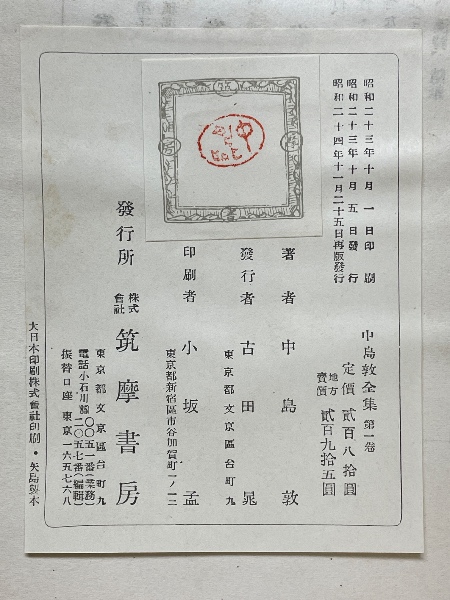 昭和二十三年十月一日印刷
昭和二十三年十月五日發行
昭和二十四年十一月二十五日再版發行
中島敦全集 第一卷
定價 貳百八拾圓
地方賣價 貳百九拾五圓
著者 中島敦
發行者 古田晁
東京都文京區台町九
印刷者 小坂孟
東京都新宿區市谷加賀町一ノ一二
發行所 株式會社 筑摩書房
東京都文京區台町九
電話小石川 〇〇五一番(業務) 二〇五七番(編輯)
振替口座 東京一六五七六八
大日本印刷株式會社印刷・矢島製本